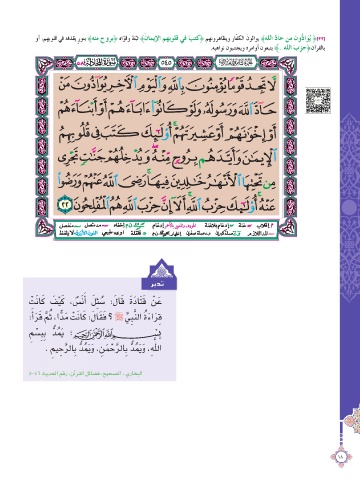 ﴿٢٢﴾ يُوَآدُّونَ مَنْ حَآدَّ اللهَ﴾ يوالون الكفّار ويظاهرونهم ﴿كَتَبَ فِي قُلُوبِهِمُ الإِيمَانَ﴾ ثبّته وقوّاه ﴿بِرُوحٍ مِنْهُ﴾ بنور يقذفه في قلوبهم، أو
بالقرآن ﴿حِزْبُ اللهِ ..﴾ يتبعون أوامره ويجتنبون نواهيه.
٥٤٥
لَّا تَجِدُ قَوْمًا يُؤْمِنُونَ بِٱللَّهِ وَٱلْيَوْمِ ٱلْأَخِرِ يُوَآدُّونَ مَنْ
حَآدَّ ٱللَّهَ وَرَسُولَهُۥ وَلَوْ كَانُوٓا۟ ءَابَآءَهُمْ أَوْ أَبْنَآءَهُمْ
أَوْ إِخْوَٰنَهُمْ أَوْ عَشِيرَتَهُمْ ۚ أُو۟لَٰٓئِكَ كَتَبَ فِى قُلُوبِهِمُ
ٱلْإِيمَٰنَ وَأَيَّدَهُم بِرُوحٍ مِّنْهُ ۖ وَيُدْخِلُهُمْ جَنَّٰتٍ تَجْرِى
مِن تَحْتِهَا ٱلْأَنْهَٰرُ خَٰلِدِينَ فِيهَا ۚ رَضِىَ ٱللَّهُ عَنْهُمْ وَرَضُوا۟
عَنْهُ ۚ أُو۟لَٰٓئِكَ حِزْبُ ٱللَّهِ ۚ أَلَآ إِنَّ حِزْبَ ٱللَّهِ هُمُ ٱلْمُفْلِحُونَ ٢٢
تدبر
عَنْ قَتَادَةَ قَالَ: سُئِلَ أَنَسٌ، كَيْفَ كَانَتْ
قِرَاءَةُ النَّبِيِّ ﷺ ؟ فَقَالَ: كَانَتْ مَدًّا، ثُمَّ قَرَأَ:
﷽ : يَمُدُّ بِبِسْمِ
اللهِ، وَيَمُدُّ بِالرَّحْمَنِ، وَيَمُدُّ بِالرَّحِيمِ .
البخاري ، الصحيح، فضائل القرآن، رقم الحديث ٥٠٤٦